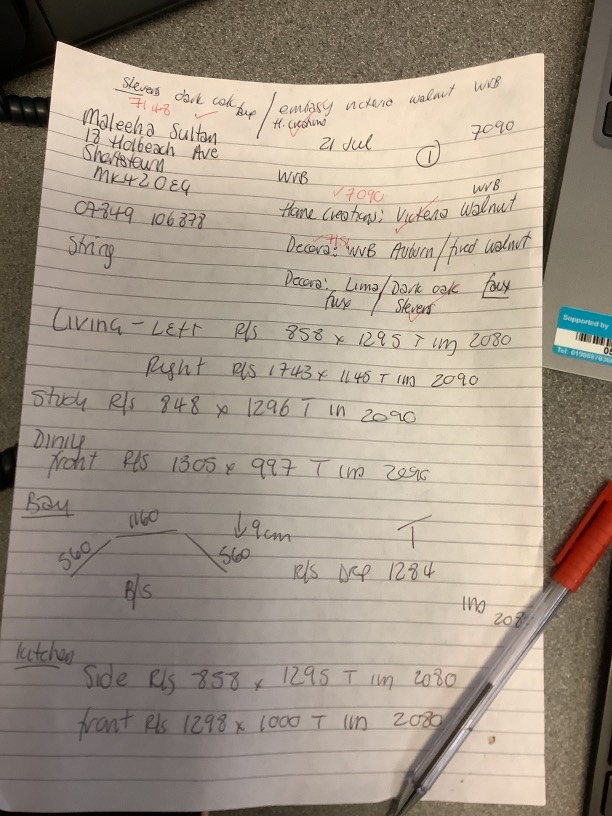 Stevens dark oak / embasy victera walnut WVB
7148 H. Creations
Maleeha Sultan 21 Jul ① 7090
13 Holbeach Ave
Shenstown
MK42 0EQ WVB
✓7090 WVB
07849 106878 Home Creations: Victera Walnut
String Decora: WVB Auburn/fired walnut
Decora: Lima/Dark oak faux
faux / Stevens
Living - Left R/s 858 x 1295 T 1m 2080
Right R/s 1743 x 1145 T 1m 2090
Study R/s 848 x 1296 T 1m 2090
Dining
front R/s 1305 x 997 T 1m 2090
Bay
1160 ↓9cm T
560 560
R/s Drp 1284
B/S
1m
208
Kitchen
Side R/s 858 x 1295 T 1m 2080
front R/s 1298 x 1000 T 1m 2080
Supported by